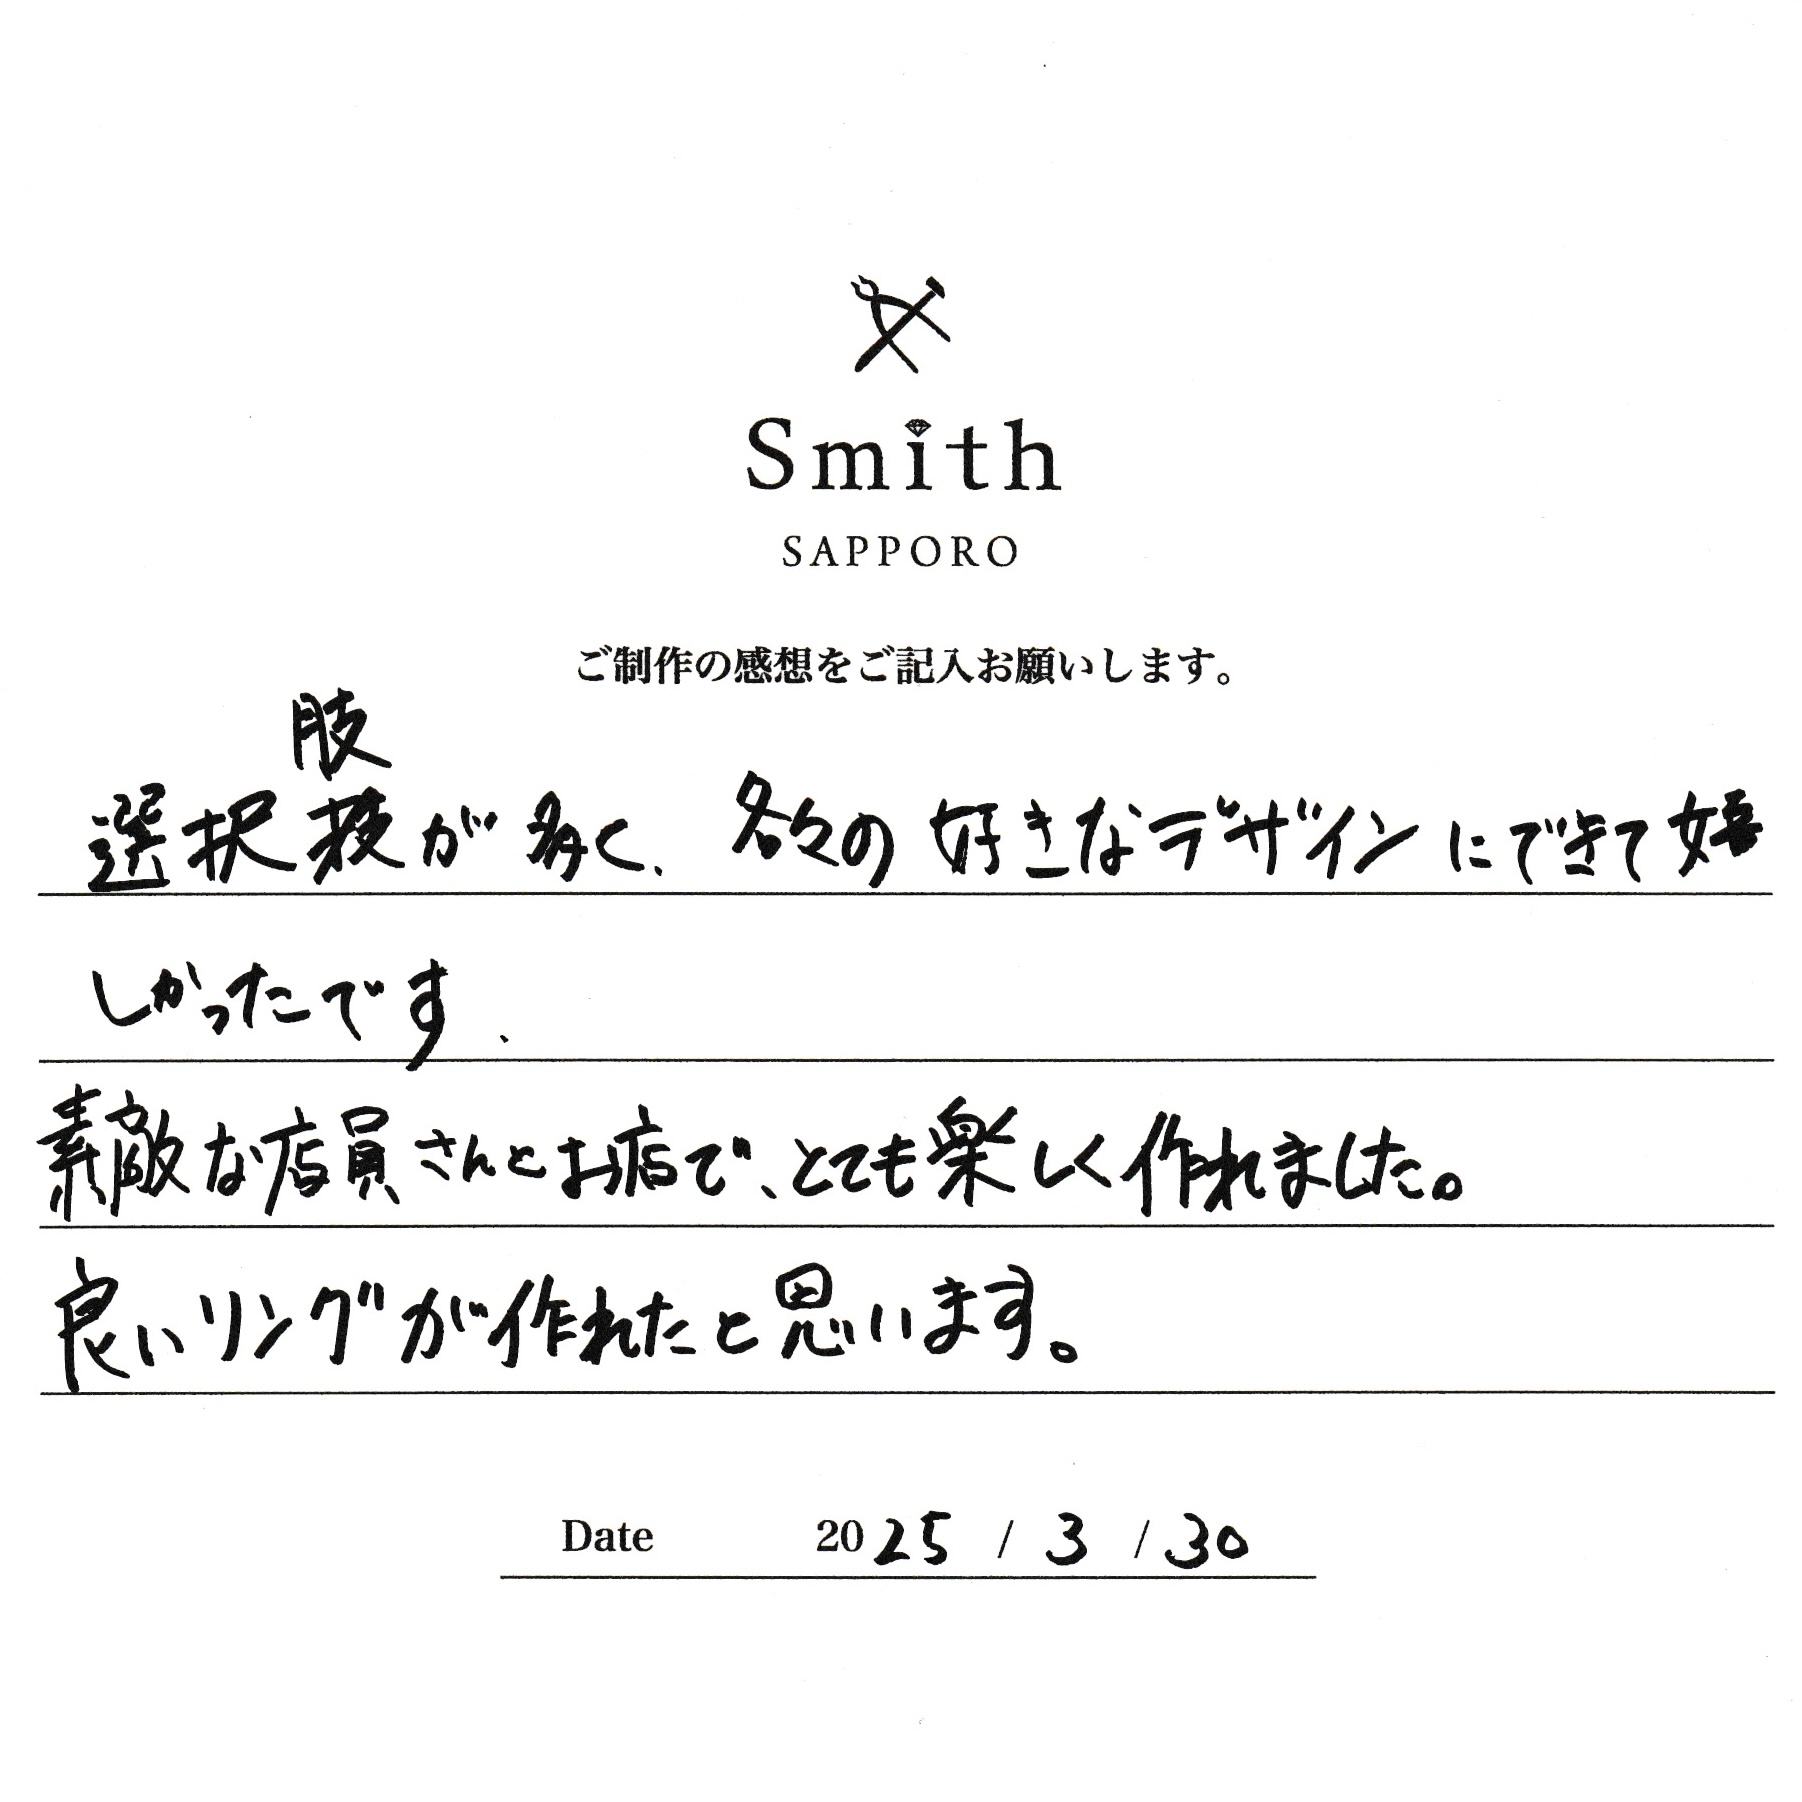 Smith
SAPPORO
ご制作の感想をご記入お願いします。
選択肢が多く、各々の好きなデザインにできて嬉
しかったです、
素敵な店員さんとお店で、とても楽しく作れました。
良いリングが作れたと思います。
Date 2025 / 3 / 30